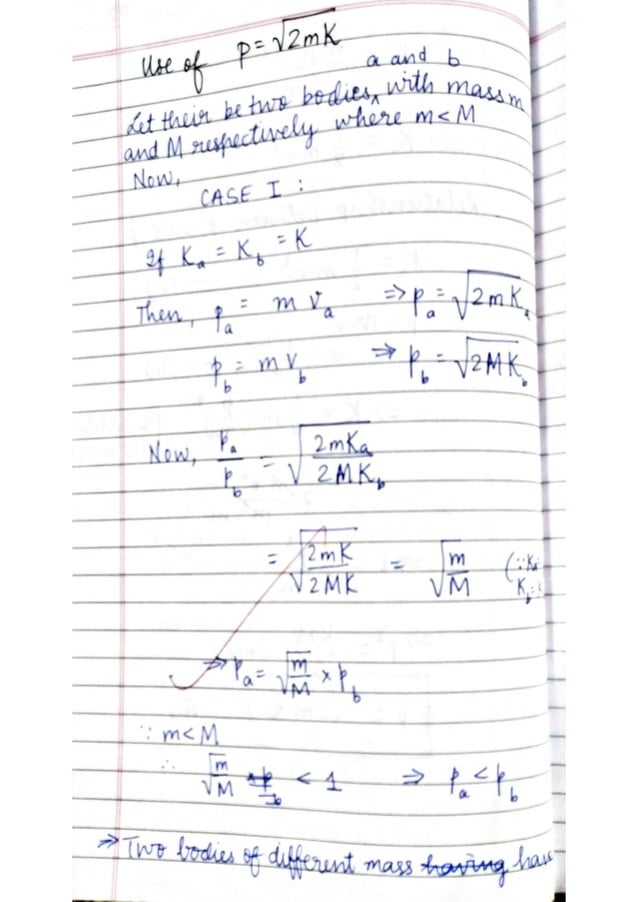 Use of p = √2mK
a and b
Let their be two bodies‸ with mass m
and M respectively where m < M
Now,
CASE I :
If Kₐ = K_b = K
Then, pₐ = m vₐ ⇒ pₐ = √2mKₐ
p_b = m v_b ⇒ p_b = √2MK_b
Now, pₐ/p_b = √(2mKₐ/2MK_b)
= √(2mK/2MK) = √(m/M) (∵ Kₐ=
K_b = K
⇒ pₐ = √(m/M) × p_b
∵ m < M
∴ √(m/M) < 1 ⇒ pₐ < p_b
⇒ Two bodies of different mass having have